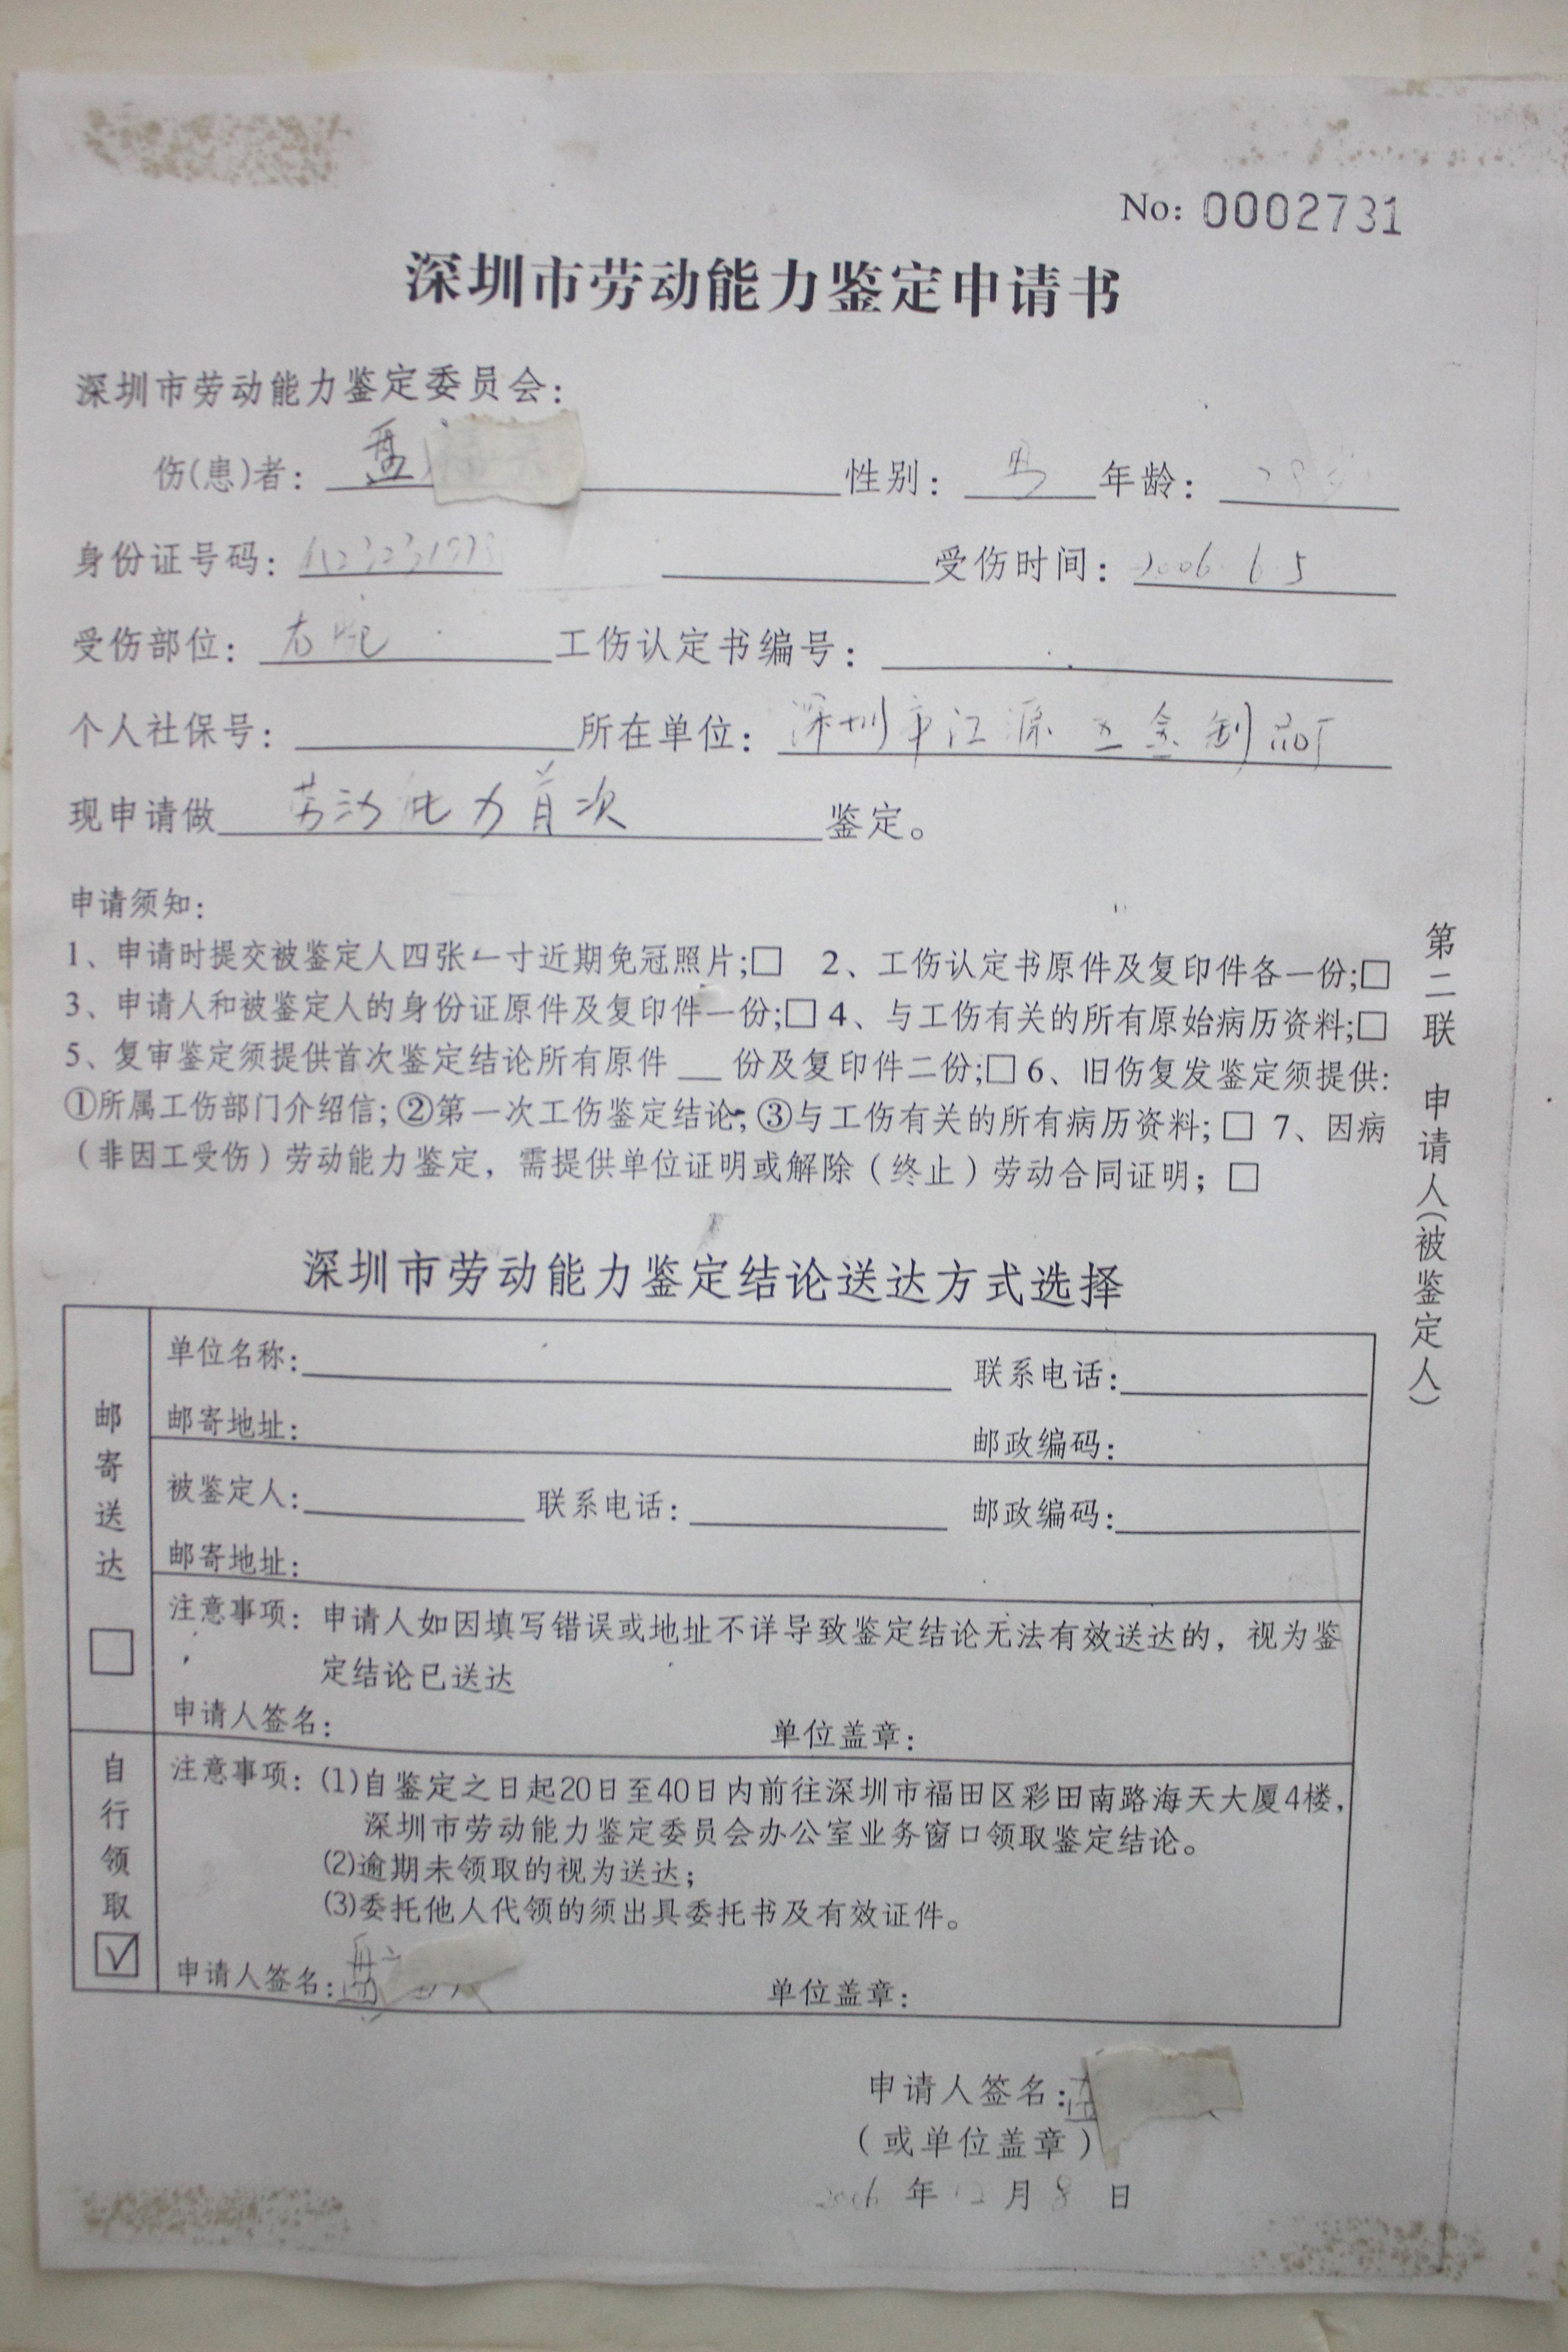 No: 0002731
深圳市劳动能力鉴定申请书
深圳市劳动能力鉴定委员会：
伤(患)者：盘 性别：男 年龄：28
身份证号码： 受伤时间：2006.6.5
受伤部位：右腕 工伤认定书编号：
个人社保号： 所在单位：深圳市江源五金制品厂
现申请做 劳动能力首次 鉴定。
申请须知：
1、申请时提交被鉴定人四张一寸近期免冠照片;□ 2、工伤认定书原件及复印件各一份;□
3、申请人和被鉴定人的身份证原件及复印件一份;□ 4、与工伤有关的所有原始病历资料;□
5、复审鉴定须提供首次鉴定结论所有原件 __ 份及复印件二份;□ 6、旧伤复发鉴定须提供:
①所属工伤部门介绍信; ②第一次工伤鉴定结论; ③与工伤有关的所有病历资料; □ 7、因病
（非因工受伤）劳动能力鉴定，需提供单位证明或解除（终止）劳动合同证明；□
第二联 申请人(被鉴定人)
深圳市劳动能力鉴定结论送达方式选择
邮寄送达 □
单位名称： 联系电话：
邮寄地址： 邮政编码：
被鉴定人： 联系电话： 邮政编码：
邮寄地址：
注意事项：申请人如因填写错误或地址不详导致鉴定结论无法有效送达的，视为鉴
定结论已送达
申请人签名： 单位盖章：
自行领取 ☑
注意事项：(1)自鉴定之日起20日至40日内前往深圳市福田区彩田南路海天大厦4楼，
深圳市劳动能力鉴定委员会办公室业务窗口领取鉴定结论。
(2)逾期未领取的视为送达；
(3)委托他人代领的须出具委托书及有效证件。
申请人签名：盘 单位盖章：
申请人签名：
（或单位盖章）
2006 年 12 月 8 日